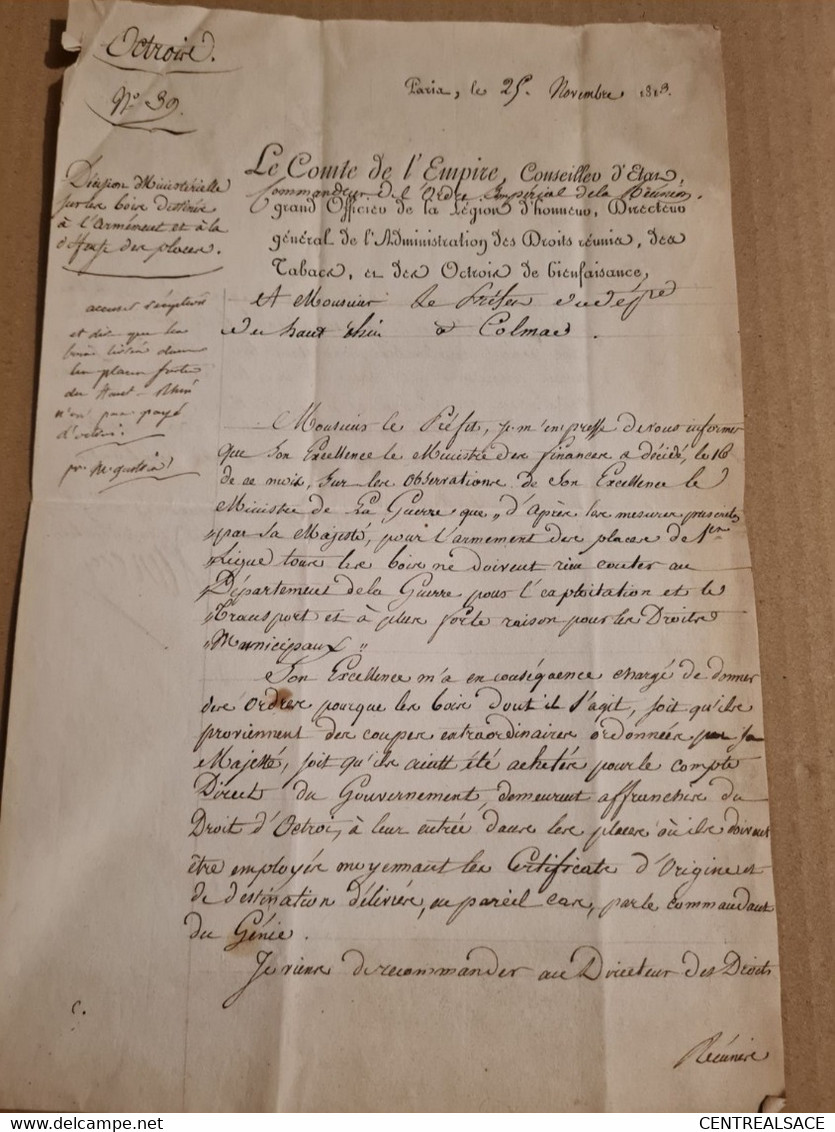 Octrois.
N° 39.
Paris, le 25 Novembre 1813.
Décision Ministerielle
sur les bois destinés
à l'Armement et à la
déffense des places.
Le Comte de l'Empire, Conseiller d'Etat,
Commandeur de l'Ordre Impérial de la Réunion,
grand Officier de la Légion d'honneur, Directeur
général de l'Administration des Droits réunis, des
Tabacs, et des Octrois de bienfaisance,
A Monsieur le Préfet du dép.
du haut Rhin à Colmar.
accuser réception
et dire que les
bois livrés dans
les places fortes
du Haut-Rhin
n'ont pas payé
d'octroi.
Monsieur le Préfet, je m'empresse de vous informer
que Son Excellence le Ministre des finances a décidé, le 16
de ce mois, sur les observations de Son Excellence le
Ministre de La Guerre, que „ d'Après les mesures prescrites
„ par Sa Majesté, pour l'armement des places de 1ere
„ Ligue tous les bois ne doivent rien couter au
„ Département de la Guerre pour l'exploitation et le
„ Transport et à plus forte raison pour les Droits
„ Municipaux „
Son Excellence m'a en conséquence chargé de donner
des Ordres pour que les bois dont il s'agit, soit qu'ils
proviennent des coupes extraordinaires ordonnées par sa
Majesté, soit qu'ils aient été achetés pour le compte
Direct du Gouvernement, demeurent affranchis du
Droit d'Octroi, à leur entrée dans les places où ils doivent
être employés moyennant les Certificats d'Origine et
de déstination délivrés, en pareil cas, par le commandant
du Génie.
Je viens de recommander au Directeur des Droits
C.
Réunis
CENTREALSACE